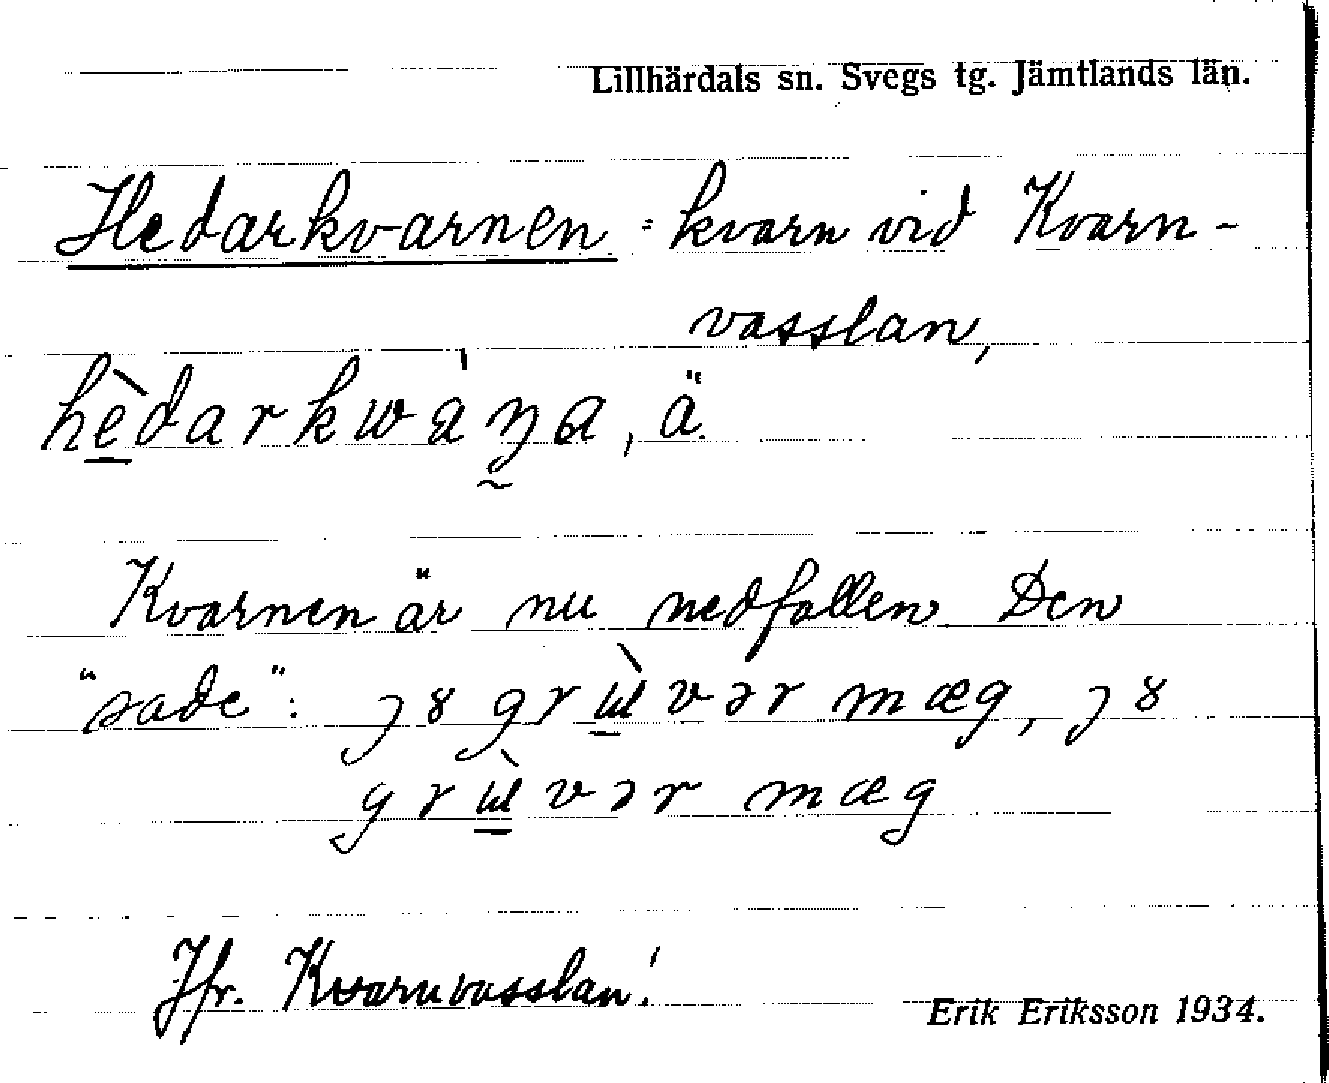 Lillhärdals sn. Svegs tg. Jämtlands län.
Hedarkvarnen = kvarn vid Kvarn-
vasslan,
hèdarkwàṇa, ä.
Kvarnen är nu nedfallen. Den
"sade": ȷ8 grɯ̀vər mæg, ȷ8
grɯ̀vər mæg
Jfr. Kvarnvasslan!
Erik Eriksson 1934.